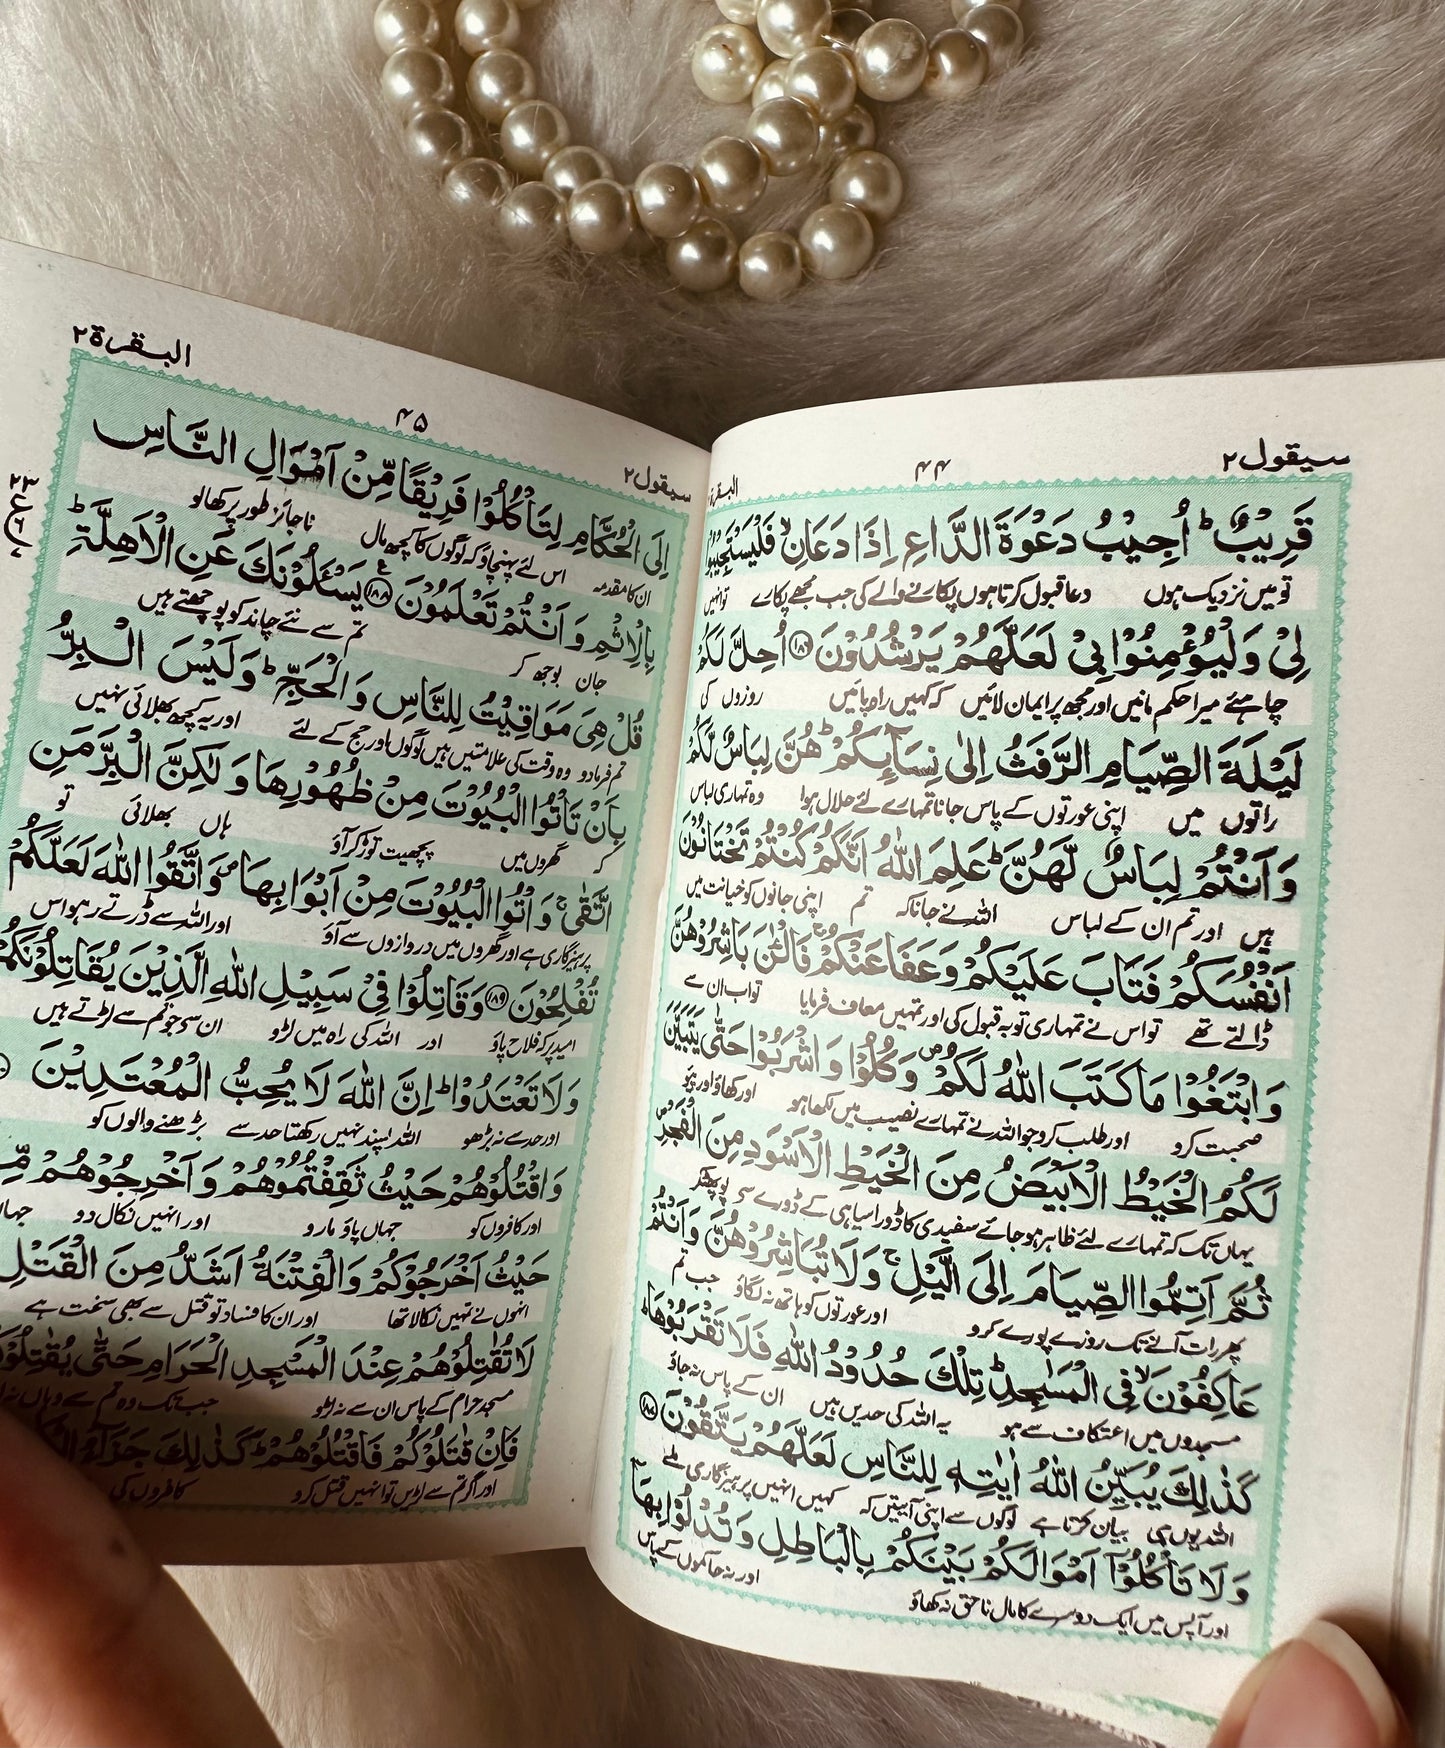 سيقول٢
٤٤
البقرة
قَرِيْبٌ ؕ اُجِيْبُ دَعْوَةَ الدَّاعِ اِذَا دَعَانِ ۙ فَلْيَسْتَجِيْبُوْا
تو میں نزدیک ہوں دعا قبول کرتا ہوں پکارنے والے کی جب مجھے پکارے تو انہیں
لِيْ وَلْيُؤْمِنُوْا بِيْ لَعَلَّهُمْ يَرْشُدُوْنَ ۝١٨٦ اُحِلَّ لَكُمْ
چاہئے میرا حکم مانیں اور مجھ پر ایمان لائیں کہ کہیں راہ پائیں روزوں کی
لَيْلَةَ الصِّيَامِ الرَّفَثُ اِلٰى نِسَآىِٕكُمْ ؕ هُنَّ لِبَاسٌ لَّكُمْ
راتوں میں اپنی عورتوں کے پاس جانا تمہارے لئے حلال ہوا وہ تمہاری لباس
وَاَنْتُمْ لِبَاسٌ لَّهُنَّ ؕ عَلِمَ اللّٰهُ اَنَّكُمْ كُنْتُمْ تَخْتَانُوْنَ
ہیں اور تم ان کے لباس اللہ نے جانا کہ تم اپنی جانوں کو خیانت میں
اَنْفُسَكُمْ فَتَابَ عَلَيْكُمْ وَعَفَا عَنْكُمْ ۚ فَالْـٰٔنَ بَاشِرُوْهُنَّ
ڈالتے تھے تو اس نے تمہاری توبہ قبول کی اور تمہیں معاف فرمایا تو اب ان سے
وَابْتَغُوْا مَا كَتَبَ اللّٰهُ لَكُمْ ۪ وَكُلُوْا وَاشْرَبُوْا حَتّٰى يَتَبَيَّنَ
صحبت کرو اور طلب کرو جو اللہ نے تمہارے نصیب میں لکھا ہو اور کھاؤ اور پیو
لَكُمُ الْخَيْطُ الْاَبْيَضُ مِنَ الْخَيْطِ الْاَسْوَدِ مِنَ الْفَجْرِ ۪
یہاں تک کہ تمہارے لئے ظاہر ہو جائے سفیدی کا ڈورا سیاہی کے ڈورے سے پوپھٹکر
ثُمَّ اَتِمُّوا الصِّيَامَ اِلَى الَّيْلِ ۚ وَلَا تُبَاشِرُوْهُنَّ وَاَنْتُمْ
پھر رات آنے تک روزے پورے کرو اور عورتوں کو ہاتھ نہ لگاؤ جب تم
عَاكِفُوْنَ ۙ فِي الْمَسٰجِدِ ؕ تِلْكَ حُدُوْدُ اللّٰهِ فَلَا تَقْرَبُوْهَا ؕ
مسجدوں میں اعتکاف سے ہو یہ اللہ کی حدیں ہیں ان کے پاس نہ جاؤ
كَذٰلِكَ يُبَيِّنُ اللّٰهُ اٰيٰتِهٖ لِلنَّاسِ لَعَلَّهُمْ يَتَّقُوْنَ ۝١٨٧
اللہ یوں ہی بیان کرتا ہے لوگوں سے اپنی آیتیں کہ کہیں انہیں پرہیزگاری ملے
وَلَا تَاْكُلُوْٓا اَمْوَالَكُمْ بَيْنَكُمْ بِالْبَاطِلِ وَتُدْلُوْا بِهَآ
اور آپس میں ایک دوسرے کا مال ناحق نہ کھاؤ اور نہ حاکموں کے پاس
سيقول٢
٤٥
البقرة٢
اِلَى الْحُكَّامِ لِتَاْكُلُوْا فَرِيْقًا مِّنْ اَمْوَالِ النَّاسِ
ان کا مقدمہ اس لئے پہنچاؤ کہ لوگوں کا کچھ مال ناجائز طور پر کھالو
بِالْاِثْمِ وَاَنْتُمْ تَعْلَمُوْنَ ۝١٨٨ يَسْـَٔلُوْنَكَ عَنِ الْاَهِلَّةِ ؕ
جان بوجھ کر تم سے نئے چاند کو پوچھتے ہیں
قُلْ هِيَ مَوَاقِيْتُ لِلنَّاسِ وَالْحَجِّ ؕ وَلَيْسَ الْبِرُّ
تم فرمادو وہ وقت کی علامتیں ہیں لوگوں اور حج کے لئے اور یہ کچھ بھلائی نہیں
بِاَنْ تَاْتُوا الْبُيُوْتَ مِنْ ظُهُوْرِهَا وَلٰكِنَّ الْبِرَّ مَنِ
کہ گھروں میں پچھیت توڑ کر آؤ ہاں بھلائی تو
اتَّقٰى ۚ وَاْتُوا الْبُيُوْتَ مِنْ اَبْوَابِهَا ۪ وَاتَّقُوا اللّٰهَ لَعَلَّكُمْ
پرہیزگاری ہے اور گھروں میں دروازوں سے آؤ اور اللہ سے ڈرتے رہو اس
تُفْلِحُوْنَ ۝١٨٩ وَقَاتِلُوْا فِيْ سَبِيْلِ اللّٰهِ الَّذِيْنَ يُقَاتِلُوْنَكُمْ
امید پر کہ فلاح پاؤ اور اللہ کی راہ میں لڑو ان سے جو تم سے لڑتے ہیں
وَلَا تَعْتَدُوْا ؕ اِنَّ اللّٰهَ لَا يُحِبُّ الْمُعْتَدِيْنَ
اور حد سے نہ بڑھو اللہ پسند نہیں رکھتا حد سے بڑھنے والوں کو
وَاقْتُلُوْهُمْ حَيْثُ ثَقِفْتُمُوْهُمْ وَاَخْرِجُوْهُمْ مِّنْ
اور کافروں کو جہاں پاؤ مارو اور انہیں نکال دو جہاں
حَيْثُ اَخْرَجُوْكُمْ وَالْفِتْنَةُ اَشَدُّ مِنَ الْقَتْلِ
انہوں نے تمہیں نکالا تھا اور ان کا فساد تو قتل سے بھی سخت ہے
لَا تُقٰتِلُوْهُمْ عِنْدَ الْمَسْجِدِ الْحَرَامِ حَتّٰى يُقٰتِلُوْ
مسجد حرام کے پاس ان سے نہ لڑو جب تک وہ تم سے وہاں نہ
فَاِنْ قٰتَلُوْكُمْ فَاقْتُلُوْهُمْ ؕ كَذٰلِكَ جَزَآءُ
اور اگر تم سے لڑیں تو انہیں قتل کرو کافروں کی